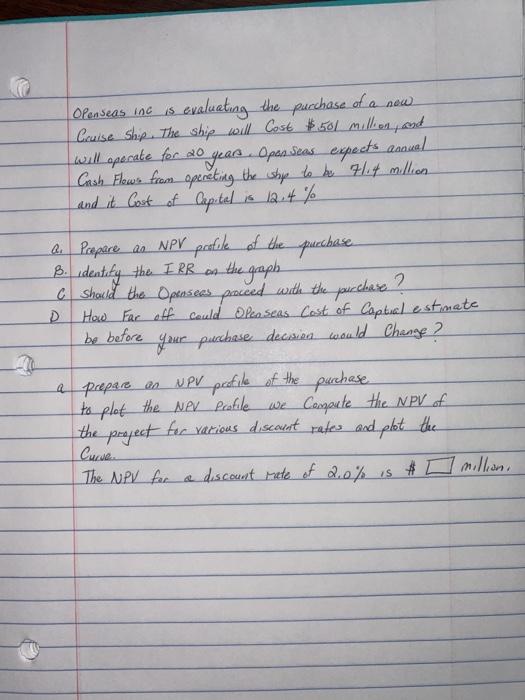 OPenseas inc is evaluating the purchase of a new
Cruise Ship. The ship will Cost $501 million, and
will operate for 20 years. Open Seas expects annual
Cash Flows from opereting the ship to be 71.4 million
and it Cost of Capital is 12.4 %
a. Prepare an NPV profile of the purchase
B. identify the IRR on the graph
C Should the Openseas proceed with the purchase?
D How Far off could OPenseas Cost of Captial estimate
be before your purchase decision would Change?
a prepare an NPV profile of the purchase
to plot the NPV Profile we Compute the NPV of
the project for various discount rates and plot the
Curve.
The NPV for a discount rate of 2.0% is $ million.